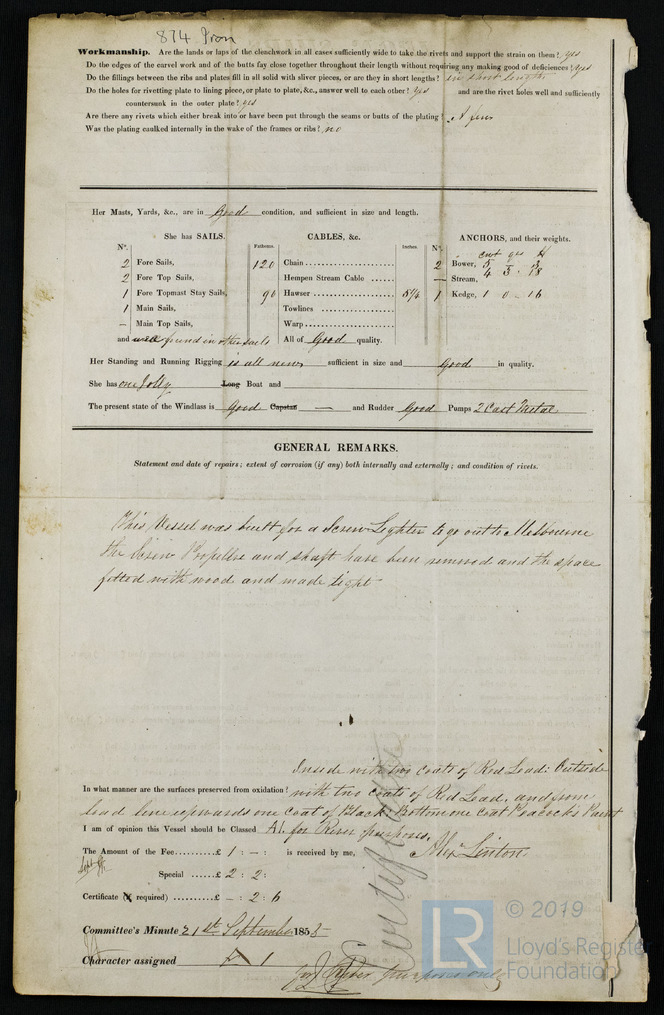 874 Iron
Workmanship. Are the lands or laps of the clenchwork in all cases sufficiently wide to take the rivets and support the strain on them? yes
Do the edges of the carvel work and of the butts fay close together throughout their length without requiring any making good of deficiences? yes
Do the fillings between the ribs and plates fill in all solid with sliver pieces, or are they in short lengths? in short lengths
Do the holes for rivetting plate to lining piece, or plate to plate, &c., answer well to each other? yes and are the rivet holes well and sufficiently
countersunk in the outer plate? yes
Are there any rivets which either break into or have been put through the seams or butts of the plating? A few
Was the plating caulked internally in the wake of the frames or ribs? no
Her Masts, Yards, &c., are in Good condition, and sufficient in size and length.
She has SAILS. CABLES, &c. ANCHORS, and their weights.
N°. Fathoms. Inches. N°. cwt qrs lb
2 Fore Sails, 120 Chain 2 Bower, 5 1 3
2 Fore Top Sails, Hempen Stream Cable — Stream, 4 3 18
1 Fore Topmast Stay Sails, 90 Hawser 5½ 1 Kedge, 1 0 - 16
1 Main Sails, Towlines
— Main Top Sails, Warp
and well found in other sails All of Good quality.
Her Standing and Running Rigging is all new sufficient in size and Good in quality.
She has one Jolly Long Boat and
The present state of the Windlass is Good Capstan — and Rudder Good Pumps 2 Cast Metal
GENERAL REMARKS.
Statement and date of repairs; extent of corrosion (if any) both internally and externally; and condition of rivets.
This Vessel was built for a Screw Lighter to go out to Melbourne
the Screw Propeller and shaft have been removed and the space
fitted with wood and made tight
Inside with two coats of Red Lead: Outside
In what manner are the surfaces preserved from oxidation? with two coats of Red Lead, and from
load line upwards one Coat of Black: Bottom one Coat Peacocks Paint
I am of opinion this Vessel should be Classed A1. for River purposes.
The Amount of the Fee £ 1 : - : is received by me, Alexr Linton
Special £ 2 : 2 :
Certificate (if required) £ - : 2 : 6
Committee's Minute 21st September 1858
Character assigned A 1
for River purposes only
© 2019
LR
Lloyd's Register
Foundation